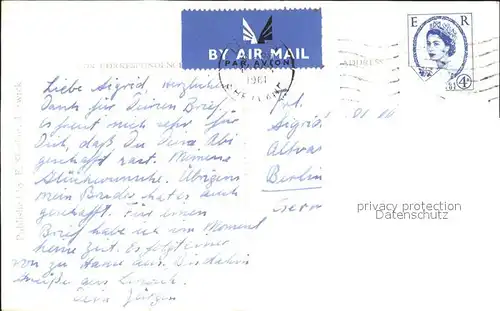 BY AIR MAIL
PAR AVION
1961
E R
4D
CORRESPONDENCE
ADDRESS
Liebe Sigrid, Herzlichen
Dank für Deinen Brief.
Es freut mich sehr für
Dich, daß Du Dein Abi
geschafft hast. Meine
Glückwünsche. Übrigens
mein Bruder hat es auch
geschafft. Für einen
Brief habe ich im Moment
keine Zeit. Es folgt einer
von zu Hause aus. Bis dahin
Grüße aus
Dein Jürgen
Frl.
Sigrid
Berlin
privacy protection
Datenschutz
Published by